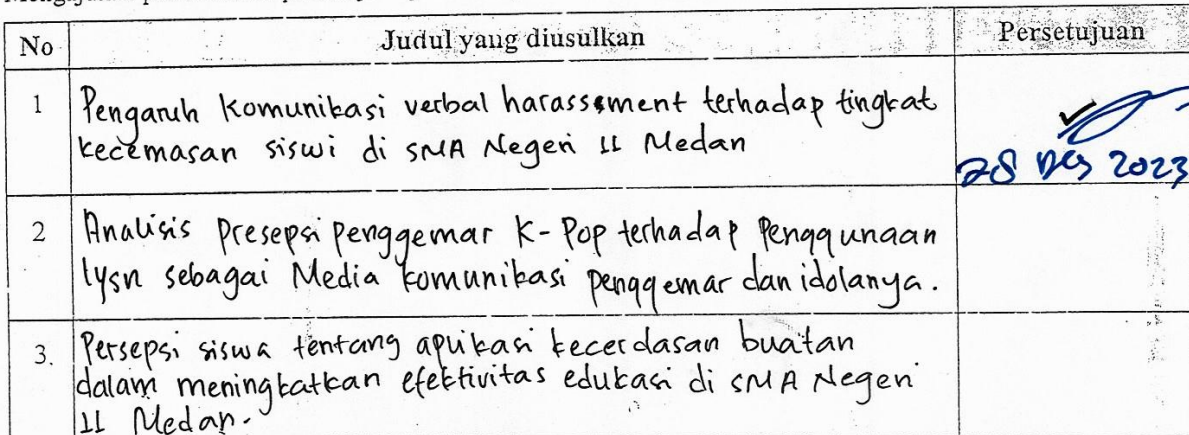 No Judul yang diusulkan Persetujuan
1 Pengaruh komunikasi verbal harassment terhadap tingkat
kecemasan siswi di SMA Negeri 11 Medan
28 Des 2023
2 Analisis Presepsi penggemar K-Pop terhadap Penggunaan
lysn sebagai Media komunikasi penggemar dan idolanya.
3. Persepsi siswa tentang aplikasi kecerdasan buatan
dalam meningkatkan efektivitas edukasi di SMA Negeri
11 Medan.